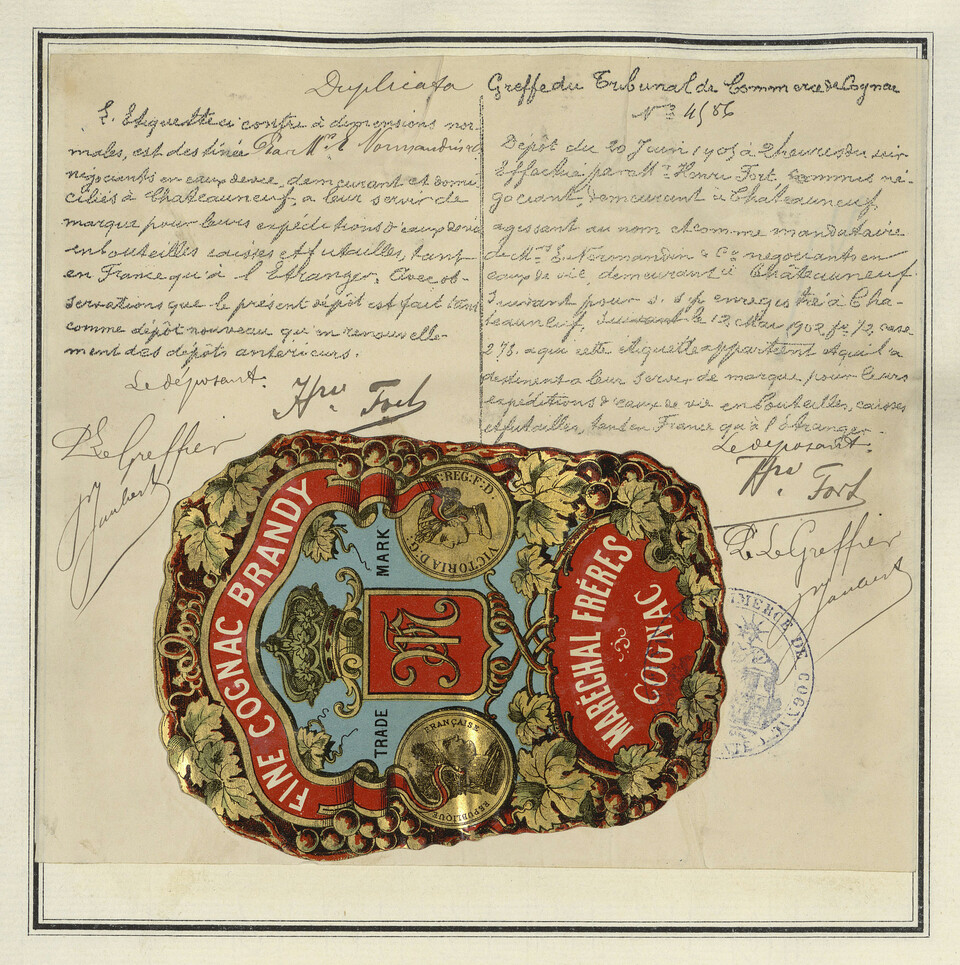 Duplicata
L'Etiquette ci contre à dimensions nor-
males, est destinée Par Mrs E Normandin &
négociants en eaux de vie, demeurant et domi-
ciliés à Chateauneuf, a leur servir de
marque pour leurs expéditions d'eaux de vie
en bouteilles caisses et futailles, tant
en France qu'à l'Etranger. Avec ob-
servations que le présent dépôt est fait tant
comme dépôt nouveau qu'en renouvelle-
ment des dépôts antérieurs.
Le déposant.
Hri Fort
P. Le Greffier
Greffe du Tribunal de Commerce de Cognac
No 4586
Dépôt du 20 Juin 1905 à 2 heures du soir
Effectué par Mr Henri Fort commis né-
gociant, demeurant à Châteauneuf,
agissant au nom et comme mandataire
de Mrs E. Normandin & Co négociants en
eaux de vie demeurant à Châteauneuf.
Suivant pour s. s. p. enregistré à Cha-
teauneuf, le 12 Mai 1902 fo 12, case
278. a qui cette étiquette appartient et qu'il a
destinent a leur servir de marque pour leurs
expéditions d'eaux de vie en bouteilles, caisses
et futailles, tant en France qu'à l'étranger.
Le déposant.
Hri Fort
P. Le Greffier
FINE COGNAC BRANDY
TRADE MARK
M
VICTORIA D.G. REG:F.D.
RÉPUBLIQUE FRANÇAISE
MARÉCHAL FRÉRES
COGNAC
COMMERCE DE COGNAC